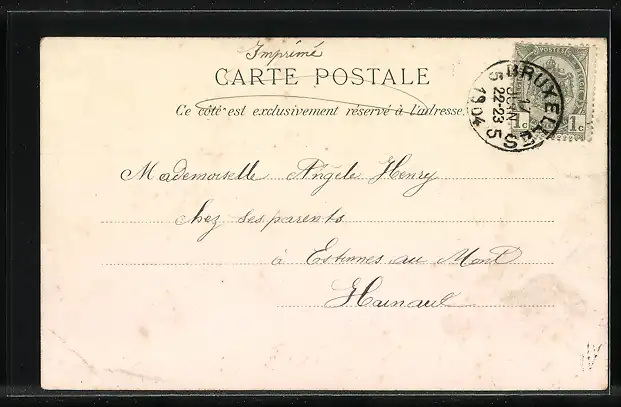 Imprimé
CARTE POSTALE
Ce côté est exclusivement réservé à l'adresse.
POSTES
1c 1c
BRUXELLES 5
JUIN
22-23
5 1904
Mademoiselle Angèle Henry
chez ses parents
à Estinnes au Mont
Hainaut